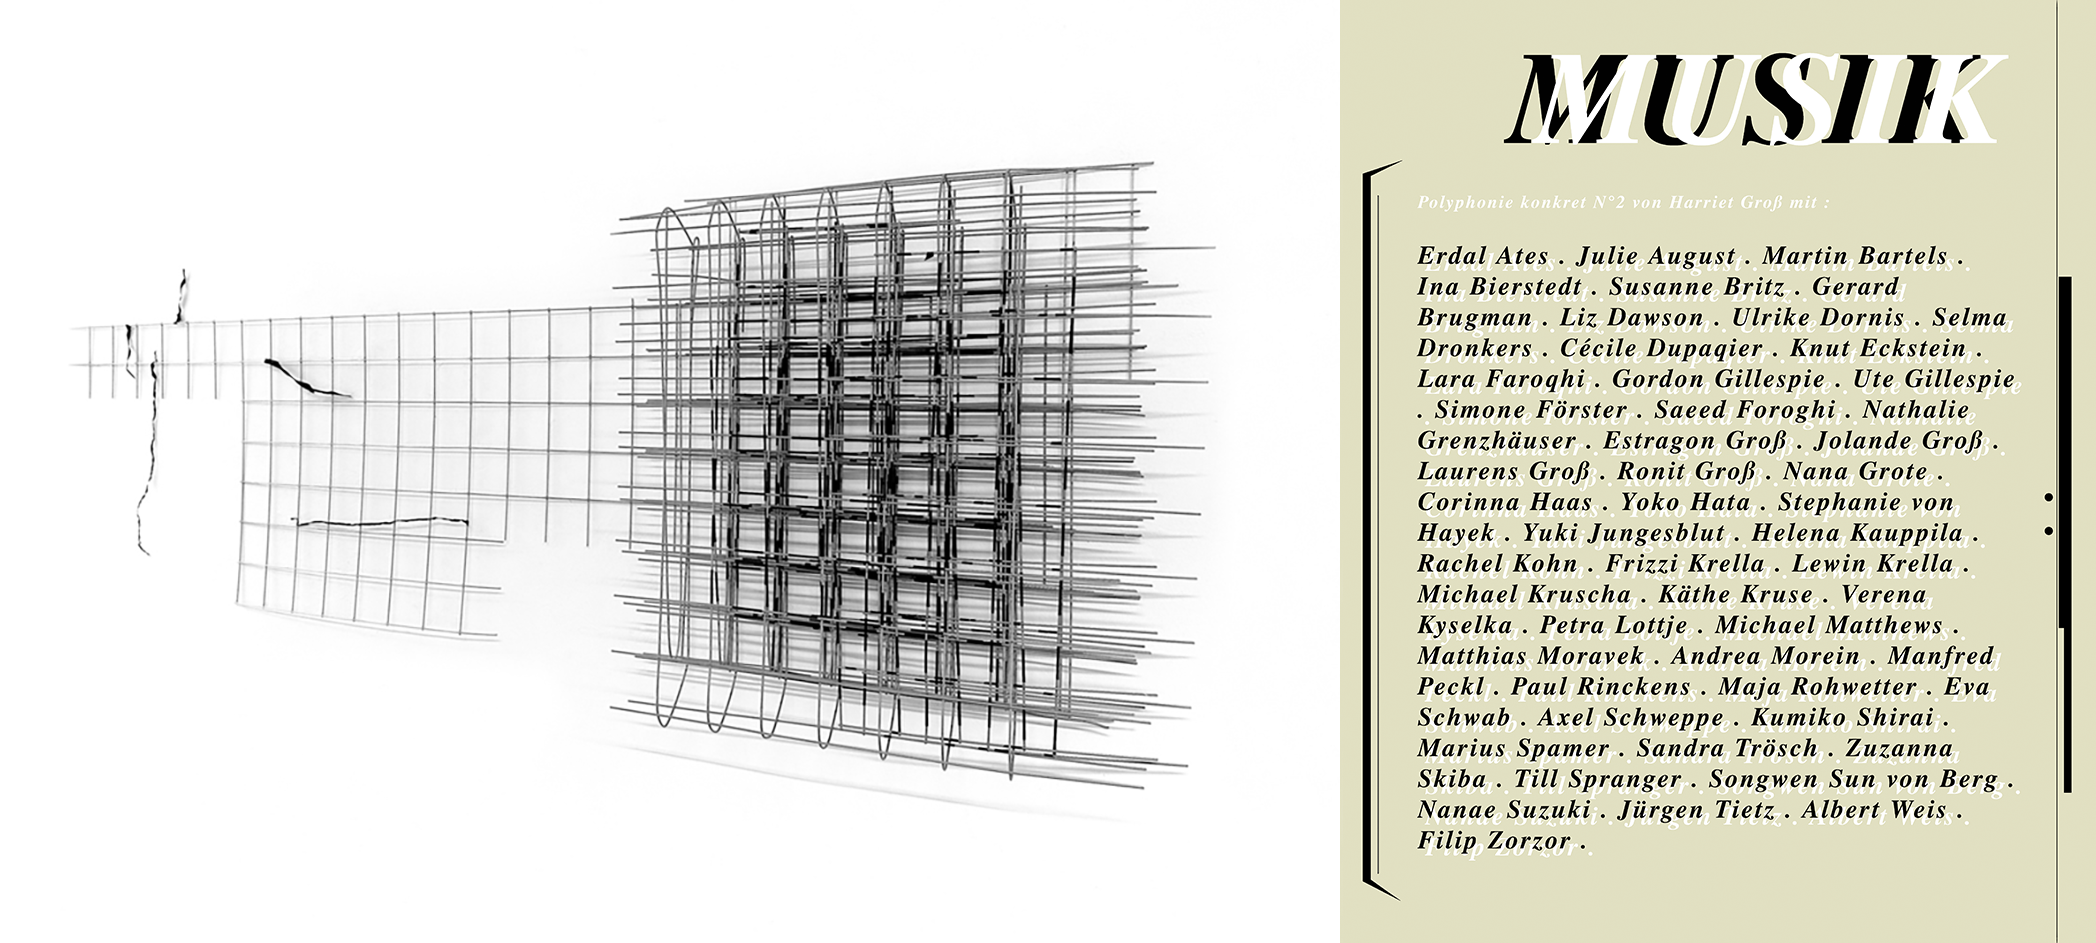 MUSIK
Polyphonie konkret N°2 von Harriet Groß mit :
Erdal Ates . Julie August . Martin Bartels .
Ina Bierstedt . Susanne Britz . Gerard
Brugman . Liz Dawson . Ulrike Dornis . Selma
Dronkers . Cécile Dupaqier . Knut Eckstein .
Lara Faroqhi . Gordon Gillespie . Ute Gillespie
. Simone Förster . Saeed Foroghi . Nathalie
Grenzhäuser . Estragon Groß . Jolande Groß .
Laurens Groß . Ronit Groß . Nana Grote .
Corinna Haas . Yoko Hata . Stephanie von
Hayek . Yuki Jungesblut . Helena Kauppila .
Rachel Kohn . Frizzi Krella . Lewin Krella .
Michael Kruscha . Käthe Kruse . Verena
Kyselka . Petra Lottje . Michael Matthews .
Matthias Moravek . Andrea Morein . Manfred
Peckl . Paul Rinckens . Maja Rohwetter . Eva
Schwab . Axel Schweppe . Kumiko Shirai .
Marius Spamer . Sandra Trösch . Zuzanna
Skiba . Till Spranger . Songwen Sun von Berg .
Nanae Suzuki . Jürgen Tietz . Albert Weis .
Filip Zorzor .